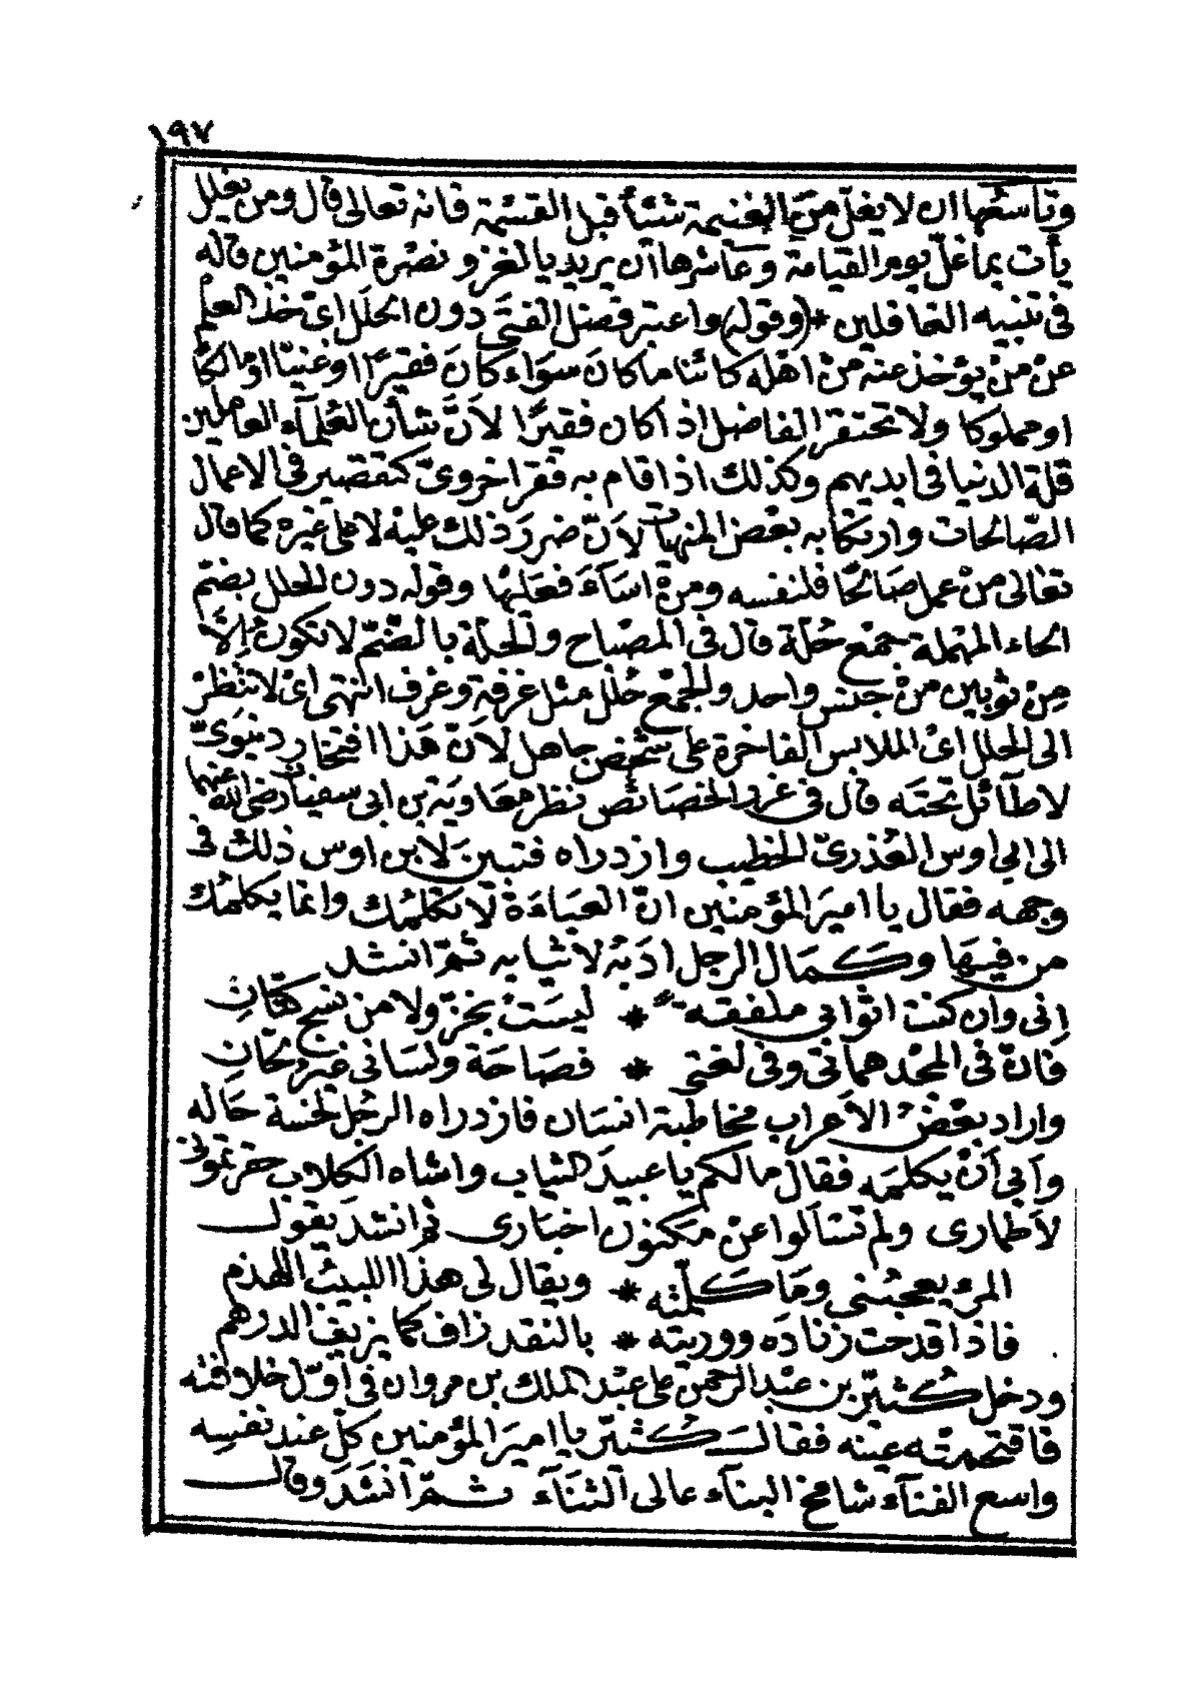 ١٩٧
وتاسعها ان لا يغل من الغنيمة شئأ قبل القسمة فانه تعالى قال ومن يغلل
يأت بما غل يوم القيامة وعاشرها أن يريد بالغزو نصرة المؤمنين قاله
فى تنبيه الغافلين * (وقوله) واعتبر فضل الفتى دون الحلل اى خذ العلم
عن من يؤخذ عنه من اهله كائنا ما كان سواء كان فقيرا او غنيا او مالكا
او مملوكا ولا تحتقر الفاضل اذا كان فقيرًا لأنّ شأن العلمآء العاملين
قلة الدنيا فى ايديهم وكذلك اذا قام به فقر اخروىّ كتقصير فى الاعمال
الصّالحات وارتكابه بعض المنهيات لأنّ ضرر ذلك عليه لا على غيره كما قال
تعالى من عمل صالحًا فلنفسه ومن اسآء فعليها وقوله دون الحلل بضم
الحاء المهملة جمع حُلّة قال فى المصباح والحلة بالضّمّ لا تكون إلاّ
مِن ثوبين من جنس واحد والجمع حُلل مثل غرفة وغرف انتهى اى لا تنظر
الى الحلل اى الملابس الفاخرة على شخص جاهل لأنّ هذا افتخار دنيوىّ
لا طآئل تحته قال فى غرر الخصائص نظر معاوية بن ابى سفيان رضى الله عنهما
الى ابى اوس العذرىّ الخطيب وازدراه فتبين لابن اوس ذلك فى
وجهه فقال يا امير المؤمنين انّ العباءة لا تكلمك وانما يكلمك
من فيها وكمال الرجل ادبه لا ثيابه ثمّ انشد
إنى وان كنت اثوابى ملفقة * ليست بخزّ ولا من نسج كتان
فانّ فى المجد هماتى وفى لغتى * فصاحة ولسانى غير لحان
واراد بعض الأعراب مخاطبة انسان فازدراه الرجل لخسة حاله
وأبى أن يكلمه فقال مالكم يا عبيد الثياب واشاه الكلاب حقرتمونى
لأطمارى ولم تسألوا عن مكنون اخبارى ثم انشد يقول
المرء يعجبنى وما كلّمته * ويقال لى هذا اللبيث اللهذم
فاذا قدحت زناده ووريته * بالنقد زاف كما يزيف الدرهم
ودخل كُثيّر بن عبد الرحمن على عبد الملك بن مروان فى اوّل خلافته
فاقتحمته عينه فقال كُثيّر يا امير المؤمنين كلّ عند نفسه
واسع الفنآء شامخ البنآء عالى الثنآء ثمّ انشد وقال